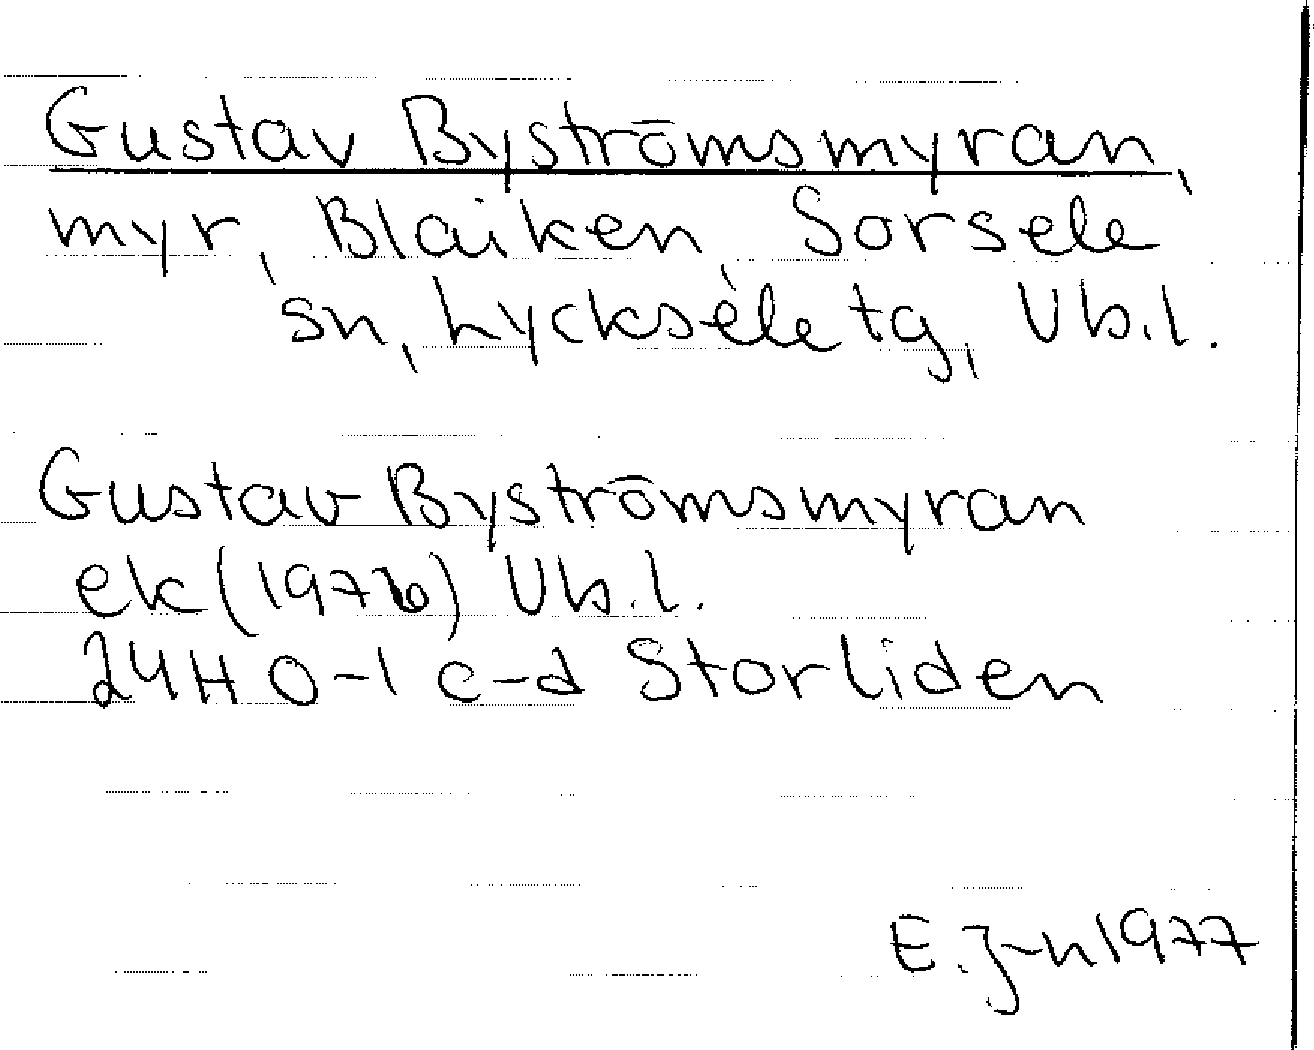 Gustav Byströmsmyran,
myr, Blaiken, Sorsele
sn, Lycksele tg, Vb.l.
Gustav Byströmsmyran
ek (1976) Vb.l.
24H 0-1 c-d Storliden
E.J-n 1977